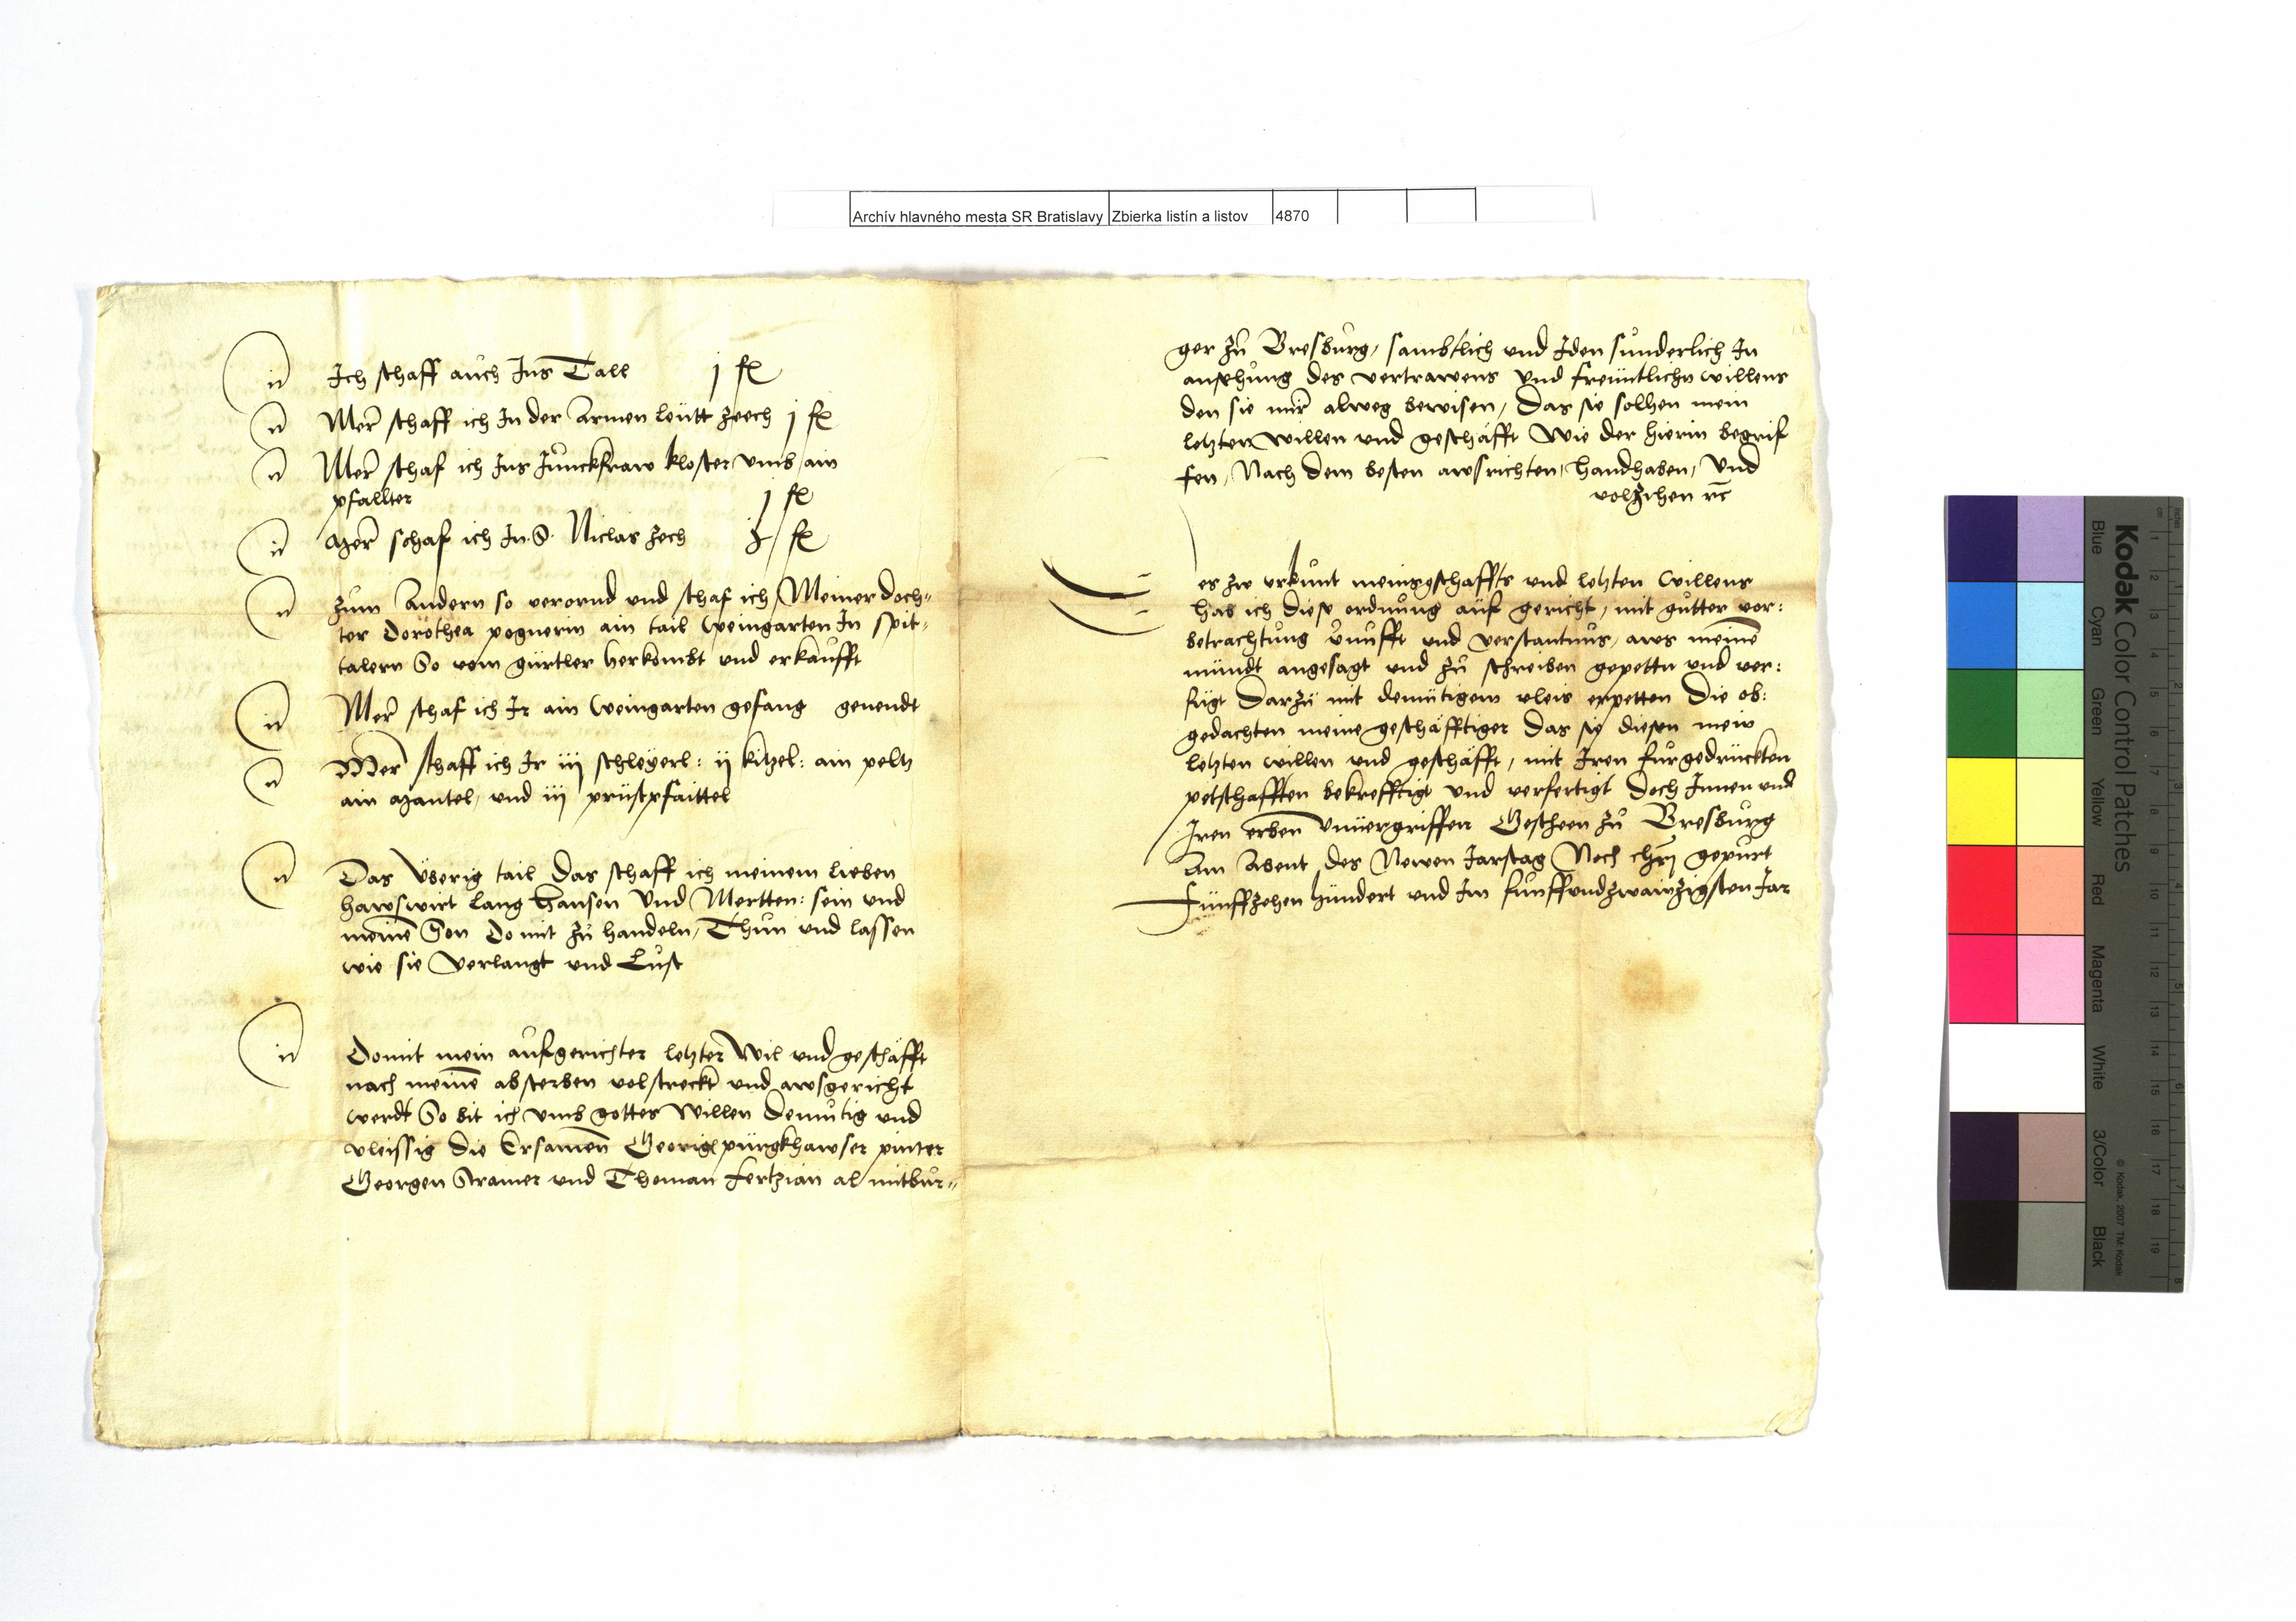 Archív hlavného mesta SR Bratislavy Zbierka listín a listov 4870
Ich schaff auch Ins Tall j fl
Mer schaff ich In der Armen leütt zeech j fl
Mer schaf ich Ins Junckfraw kloster vmb ain
psallter j fl
Mer schaf ich In S Niclas zech fl
zum Andern so verornd vnd schaf ich Meiner doch=
ter Dorothea pognerin ain tail weingarten In spit=
talern So vom gürtler herkombt vnd erkaufft
Mer schaf ich Ir ain weingarten gesang genendt
Mer schaff ich Ir iij schleyerl: ij kitzel: ain peltz
ain Mantel, vnd iij prustpfaittel
Das Überig tail das schaff ich meinem lieben
hawswirt lang Hansen Vnd Mertten: sein vnd
meine Son Do mit zu handeln, Thun vnd lassen
wie sie Verlangt vnd Lust
Domit mein aufgerichter letzter Wil vnd geschäfft
nach meine absterben volstreckt vnd awsgericht
werdt So bit ich vmb gottes Willen demutig vnd
vleissig die Ersamen Georigl pürgkhawser pinter
Georgen kramer vnd Thoman fertzian al mitbur=
ger zu Bresburg, sambtlich vnd Iden sunderlich In
ansehung des vertrawens Vnd freüntlichn willens
den sie mir alweg bewisen, Das sie solhen mein
letzten willen vnd geschäfft Wie der hierin begrif
fen, Nach dem besten awsrichten, handhaben, Vnd
volzihen rc
es zw vrkunt meinsgeschaffts vnd letzten willens
hab ich diese ordnung auf gericht, mit gutter vor:
betrachtung vnufft vnd verstantnus, aws meine
mündt angesagt vnd zu schreiben gepettn vnd ver:
fügt Darzu mit demütigem vleis erpetten Die ob:
gedachten meine geschäfftiger Das sie diesen mein
letzten willen vnd geschäfft, mit Iren furgedrückten
petschafften bekrefftigt vnd verfertigt Doch Innen vnd
Iren erben Vnuergriffen Gescheen zu Bresburg
Am Abent des Newen Jarstag Noch chri gepurt
Fünffzehen hundert vnd Im funffvndzwaintzigsten Jar
Kodak Color Control Patches
Blue Cyan Green Yellow Red Magenta White 3/Color Black
© Kodak, 2007 TM: Kodak